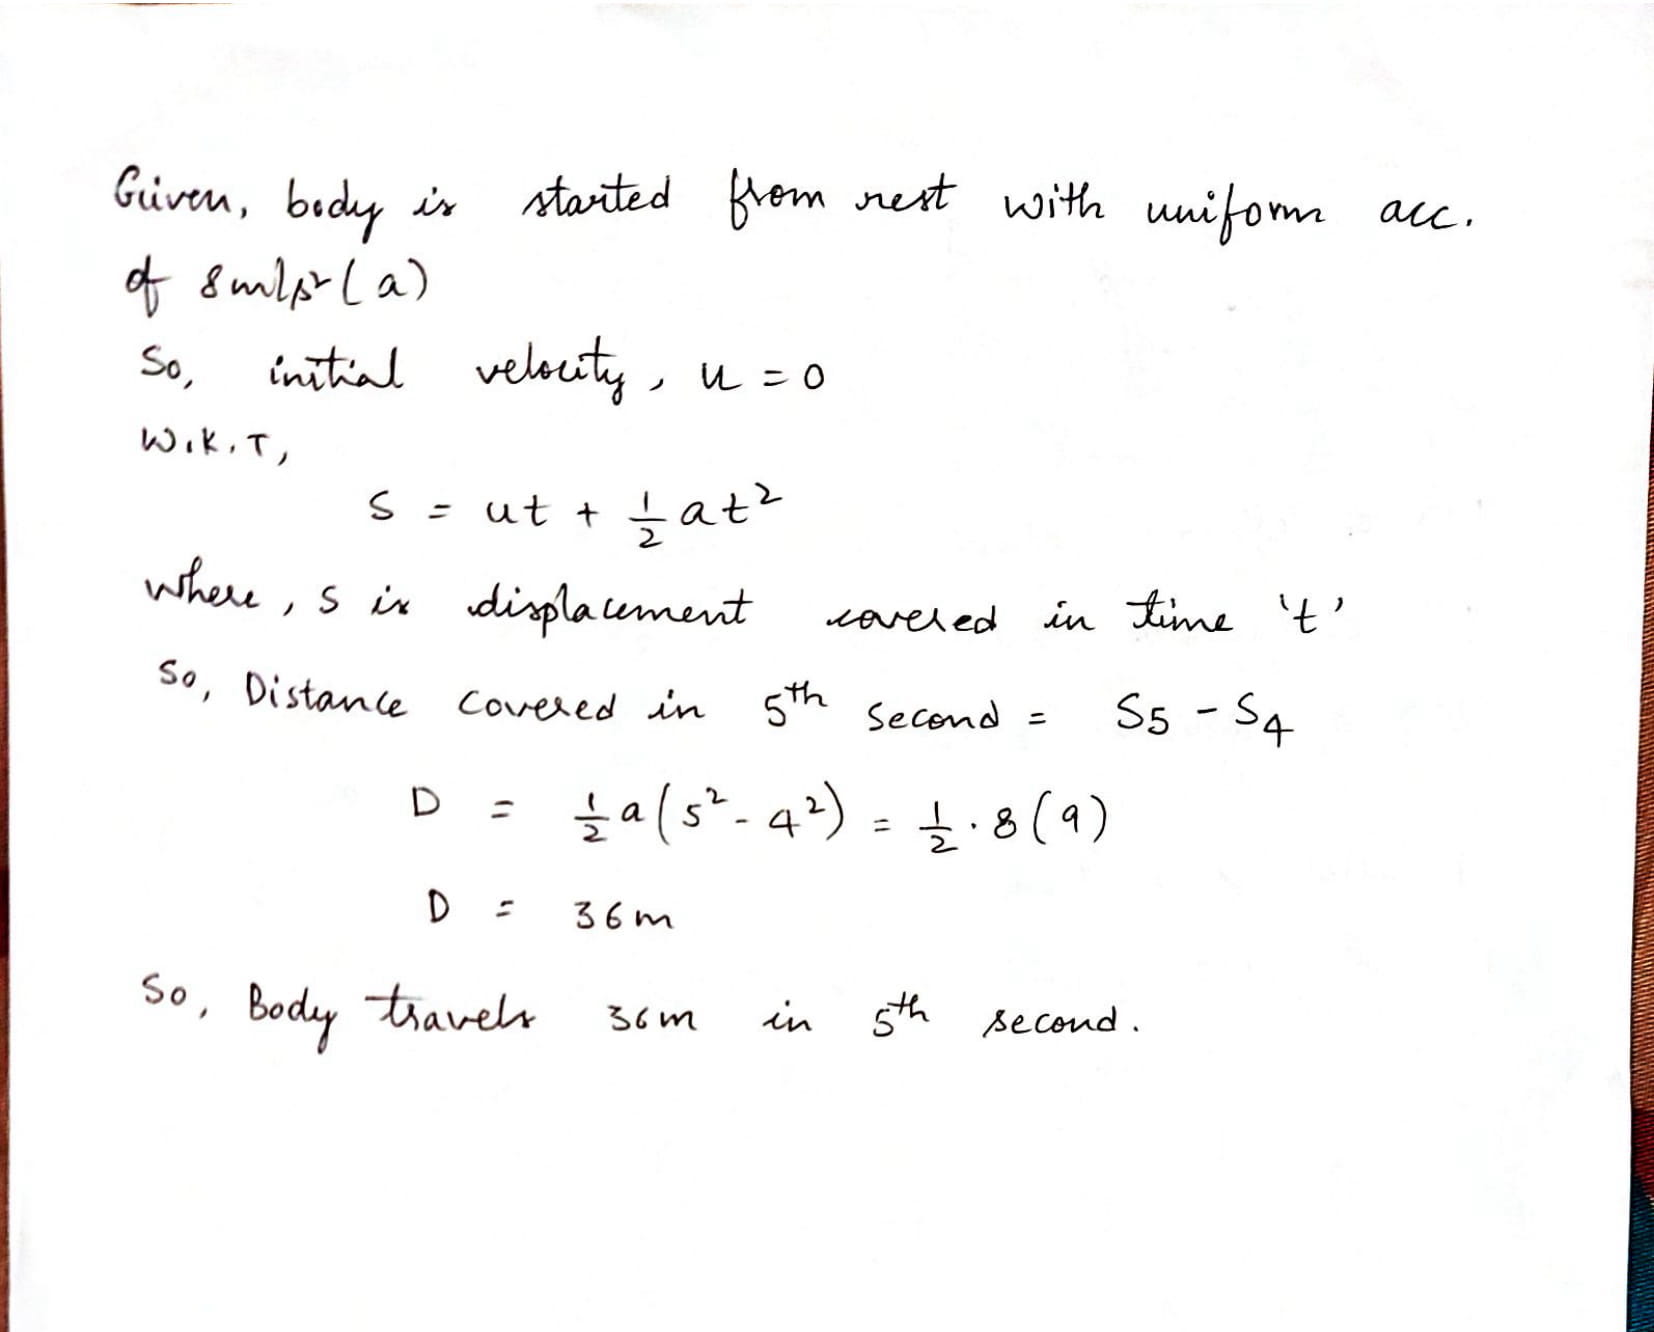 Given, body is started from rest with uniform acc.
of 8m/s² (a)
So, initial velocity, u = 0
W.K.T,
S = ut + 1/2 at²
where, s is displacement covered in time 't'
So, Distance covered in 5th second = S5 - S4
D = 1/2 a(5² - 4²) = 1/2 . 8(9)
D = 36m
So, Body travels 36m in 5th second.